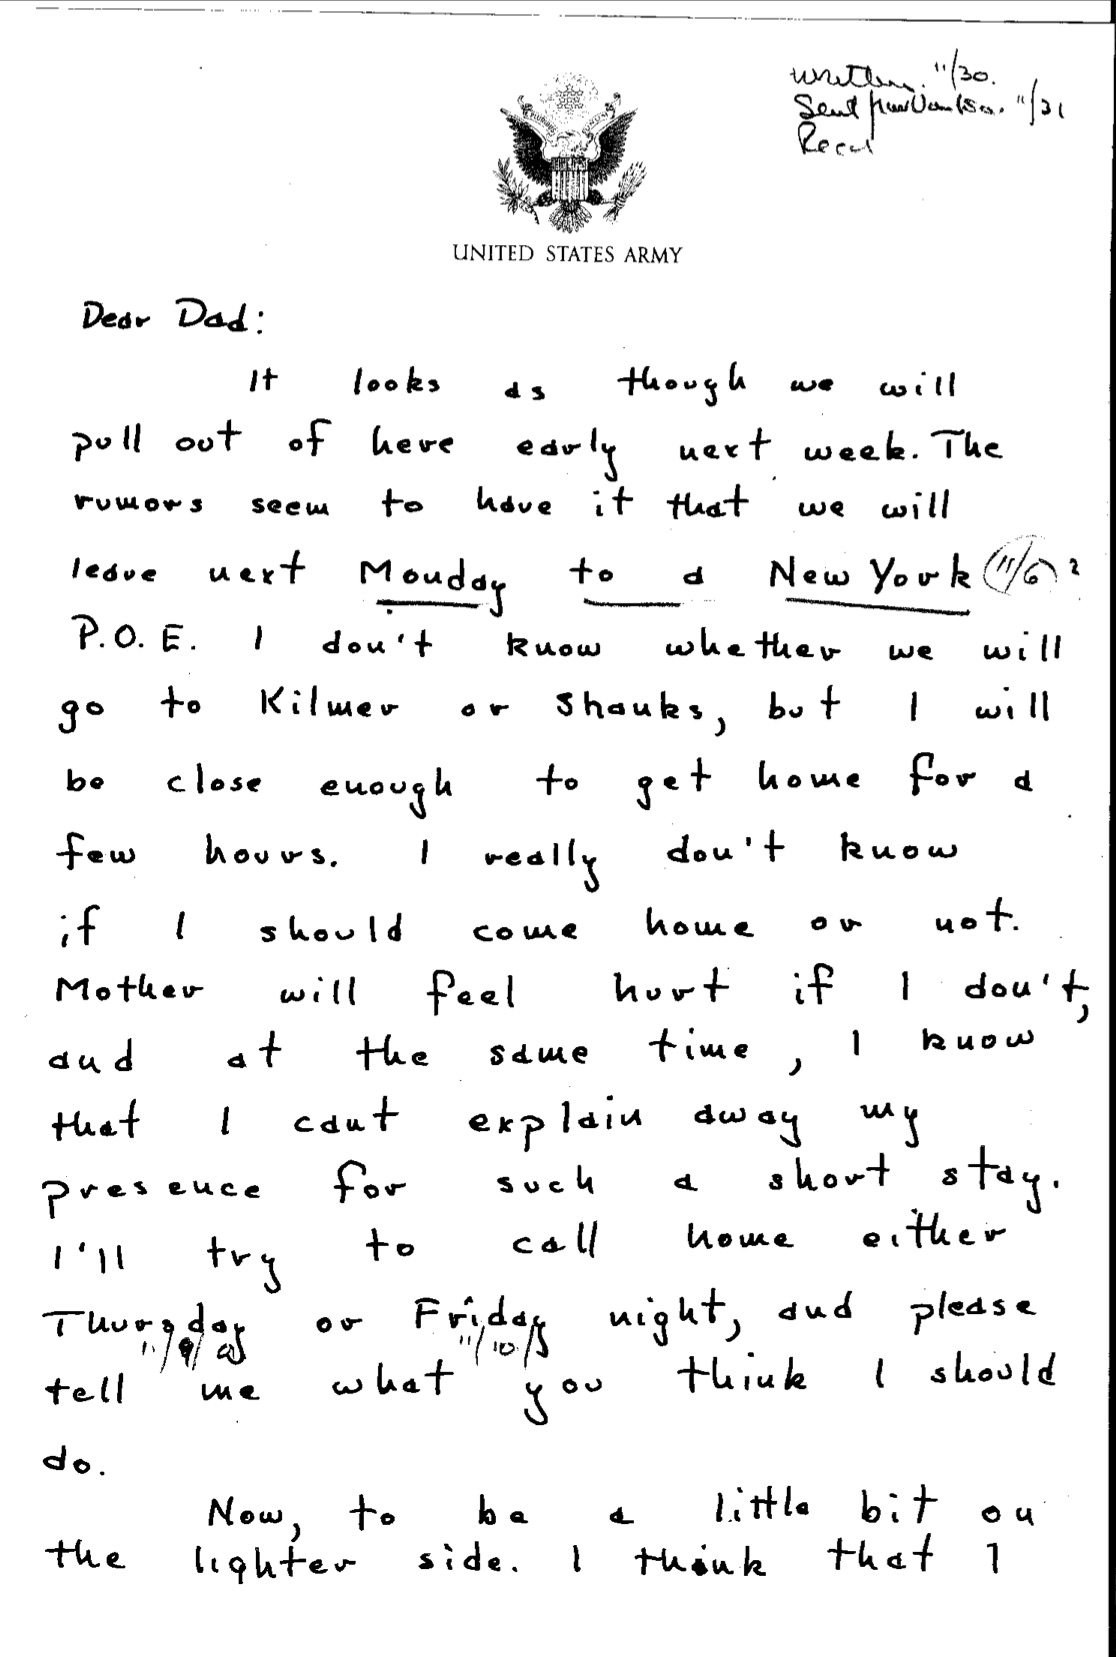 written 11/30.
Sent from 11/31
Recd
UNITED STATES ARMY
Dear Dad:
It looks as though we will
pull out of here early next week. The
rumors seem to have it that we will
leave next Monday to a New York 11/6 ?
P.O.E. I don't know whether we will
go to Kilmer or Shanks, but I will
be close enough to get home for a
few hours. I really don't know
if I should come home or not.
Mother will feel hurt if I don't,
and at the same time, I know
that I cant explain away my
presence for such a short stay.
I'll try to call home either
Thursday or Friday night, and please
11/9/ 11/10/
tell me what you think I should
do.
Now, to be a little bit on
the lighter side. I think that I